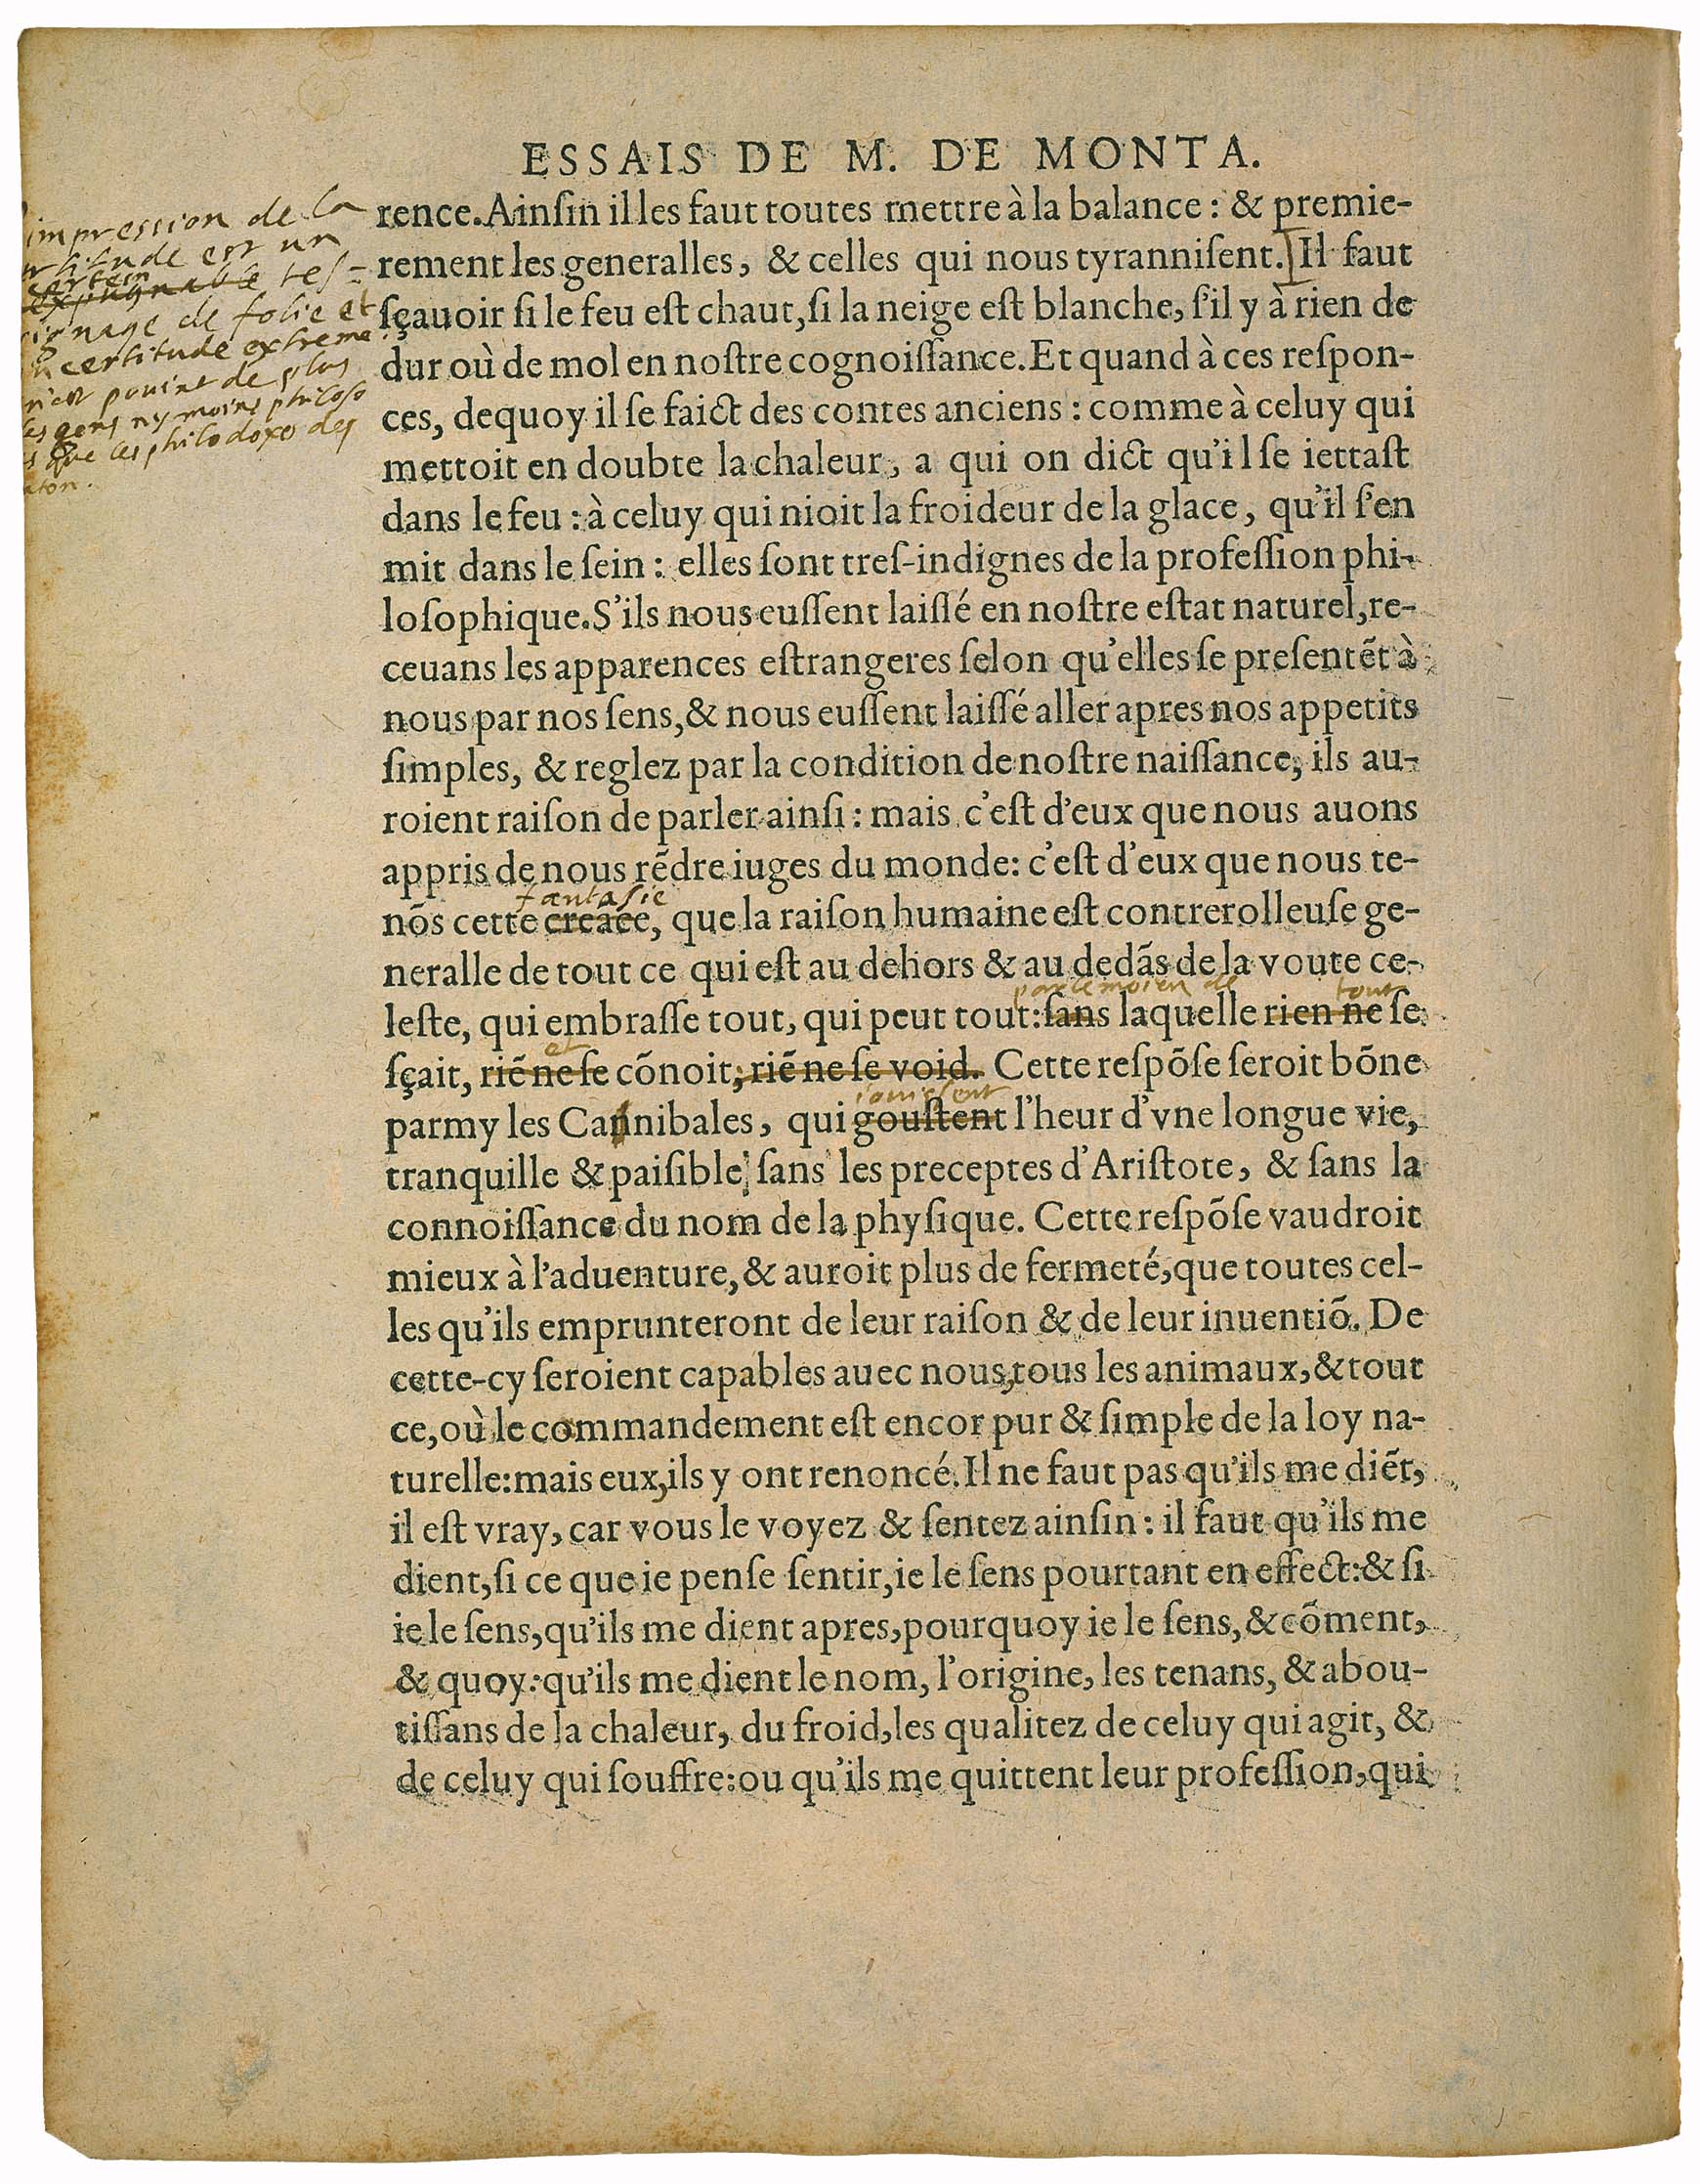 ESSAIS DE M. DE MONTA.
impression de la
rtitude est un
certein
expugnable tes=
ignage de folie et
incertitude extreme
n'est pouint de plus
les gens ny moins philoso
s que les philodoxes de
aton.
rence. Ainſin il les faut toutes mettre à la balance : & premie-
rement les generalles, & celles qui nous tyranniſent.] Il faut
ſçauoir ſi le feu eſt chaut, ſi la neige eſt blanche, ſ'il y à rien de
dur où de mol en noſtre cognoiſſance. Et quand à ces reſpon-
ces, dequoy il ſe faict des contes anciens : comme à celuy qui
mettoit en doubte la chaleur, a qui on dict qu'il ſe iettaſt
dans le feu : à celuy qui nioit la froideur de la glace, qu'il ſ'en
mit dans le ſein : elles ſont treſ-indignes de la profeſſion phi-
loſophique. S'ils nous euſſent laiſſé en noſtre eſtat naturel, re-
ceuans les apparences eſtrangeres ſelon qu'elles ſe preſentẽt à
nous par nos ſens, & nous euſſent laiſſé aller apres nos appetits
ſimples, & reglez par la condition de noſtre naiſſance, ils au-
roient raiſon de parler ainſi : mais c'eſt d'eux que nous auons
appris de nous rẽdre iuges du monde : c'eſt d'eux que nous te-
fantasie
nõs cette creãce, que la raiſon humaine eſt contrerolleuſe ge-
neralle de tout ce qui eſt au dehors & au dedãs de la voute ce-
par le moien de tout
leſte, qui embraſſe tout, qui peut tout : ſans laquelle rien ne ſe
et
ſçait, riẽ ne ſe cõnoit, riẽ ne ſe void. Cette reſpõſe ſeroit bõne
iouissent
parmy les Cannibales, qui gouſtent l'heur d'vne longue vie,
tranquille & paiſible, ſans les preceptes d'Ariſtote, & ſans la
connoiſſance du nom de la phyſique. Cette reſpõſe vaudroit
mieux à l'aduenture, & auroit plus de fermeté, que toutes cel-
les qu'ils emprunteront de leur raiſon & de leur inuentiõ. De
cette-cy ſeroient capables auec nous, tous les animaux, & tout
ce, où le commandement eſt encor pur & ſimple de la loy na-
turelle : mais eux, ils y ont renoncé. Il ne faut pas qu'ils me diẽt,
il eſt vray, car vous le voyez & ſentez ainſin : il faut qu'ils me
dient, ſi ce que ie penſe ſentir, ie le ſens pourtant en effect : & ſi
ie le ſens, qu'ils me dient apres, pourquoy ie le ſens, & cõment,
& quoy : qu'ils me dient le nom, l'origine, les tenans, & abou-
tiſſans de la chaleur, du froid, les qualitez de celuy qui agit, &
de celuy qui ſouffre : ou qu'ils me quittent leur profeſſion, qui